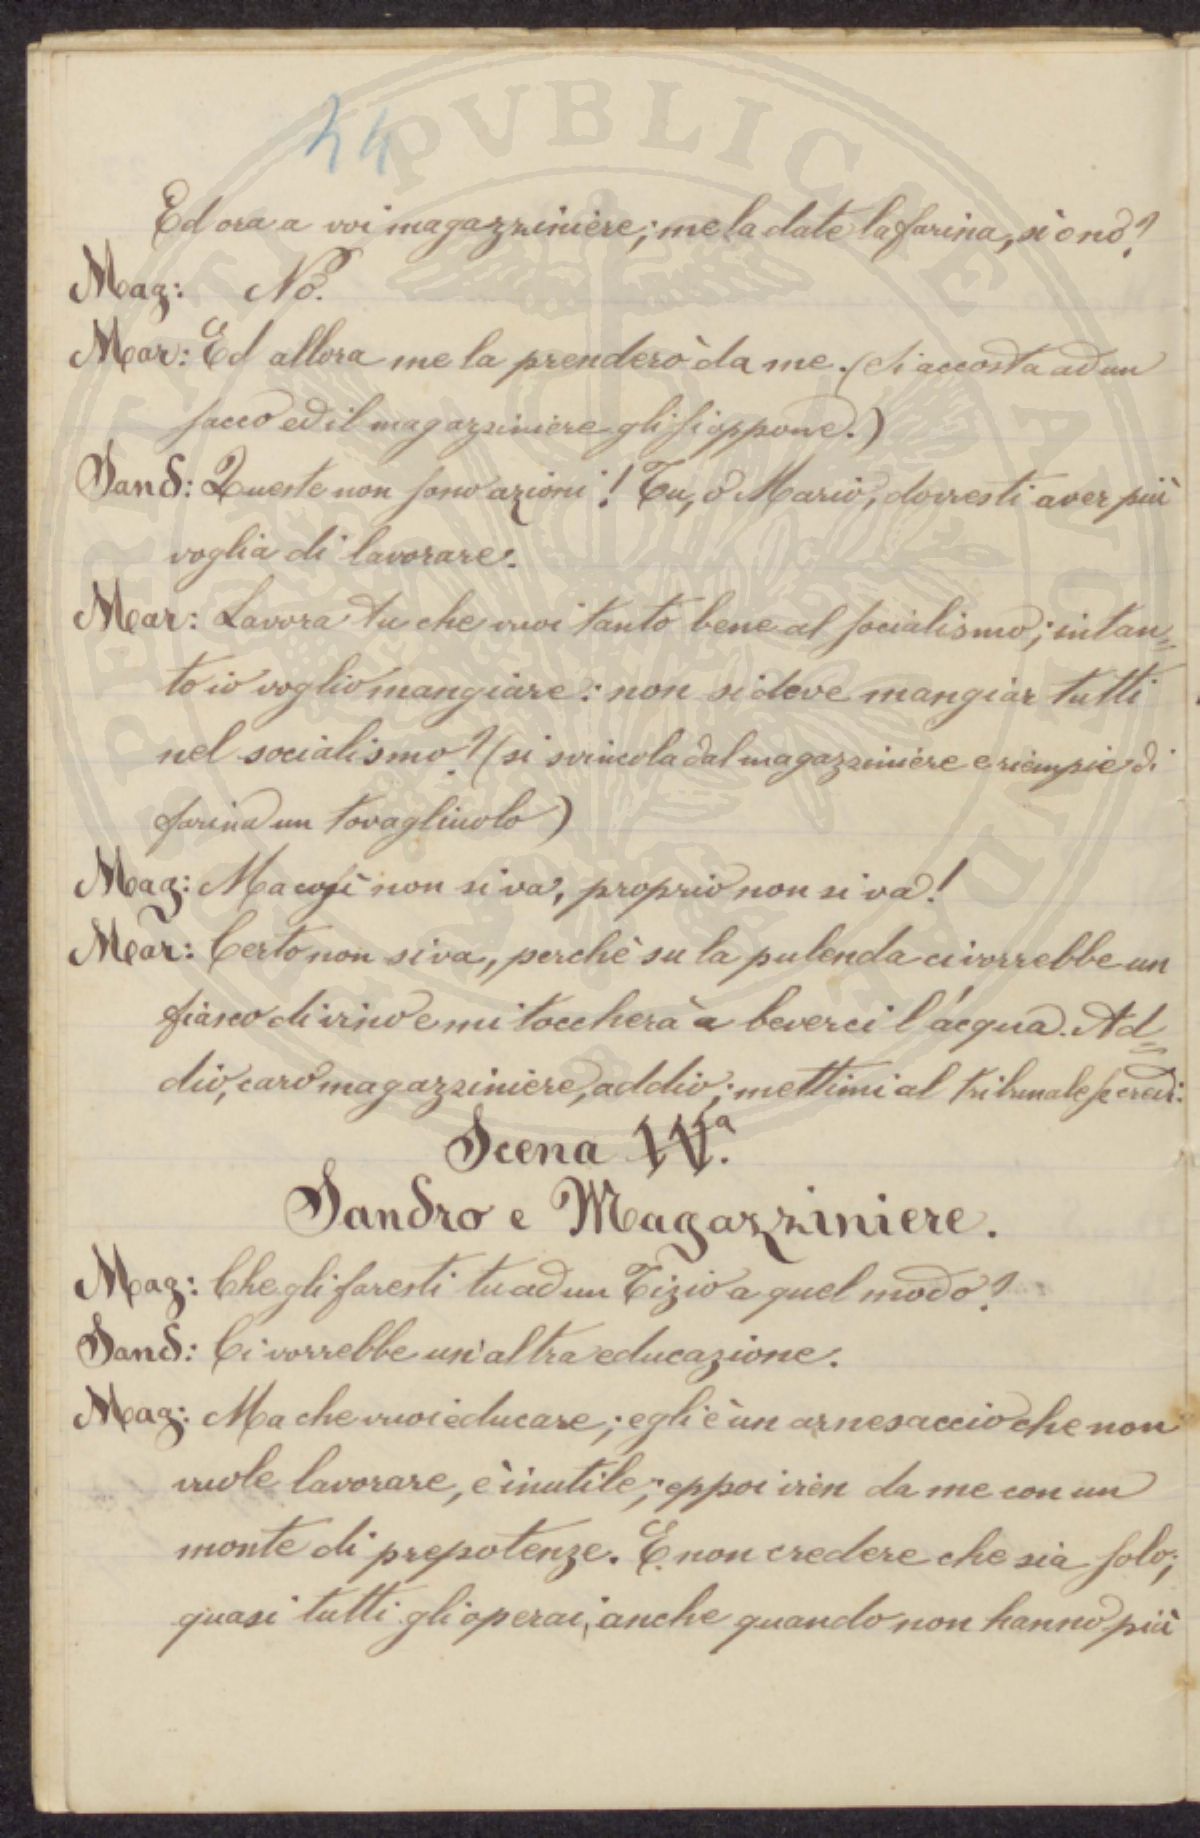 24
Ed ora a voi magazziniere; me la date la farina, sì o nò?
Mag: Nò.
Mar: Ed allora me la prenderò da me. (Si accosta ad un
sacco ed il magazziniere gli si oppone.)
Sand: Queste non sono azioni! Tu, o Mario, dovresti aver più
voglia di lavorare.
Mar: Lavora tu che vuoi tanto bene al socialismo; intan=
to io voglio mangiare: non si deve mangiar tutti
nel socialismo? (si svincola dal magazziniere e riempie di
farina un tovagliuolo)
Mag: Ma così non si va, proprio non si va!
Mar: Certo non si va, perchè su la pulenda ci vorrebbe un
fiasco di vino e mi toccherà a beverci l'acqua. Ad=
dio, caro magazziniere, addio; mettimi al tribunale se credi.
Scena IVª.
Sandro e Magazziniere.
Mag: Che gli faresti tu ad un Tizio a quel modo?
Sand: Ci vorrebbe un'altra educazione.
Mag: Ma che vuoi educare; egli è un arnesaccio che non
vuole lavorare, è inutile; eppoi vien da me con un
monte di prepotenze. E non credere che sia solo;
quasi tutti gli operai, anche quando non hanno più